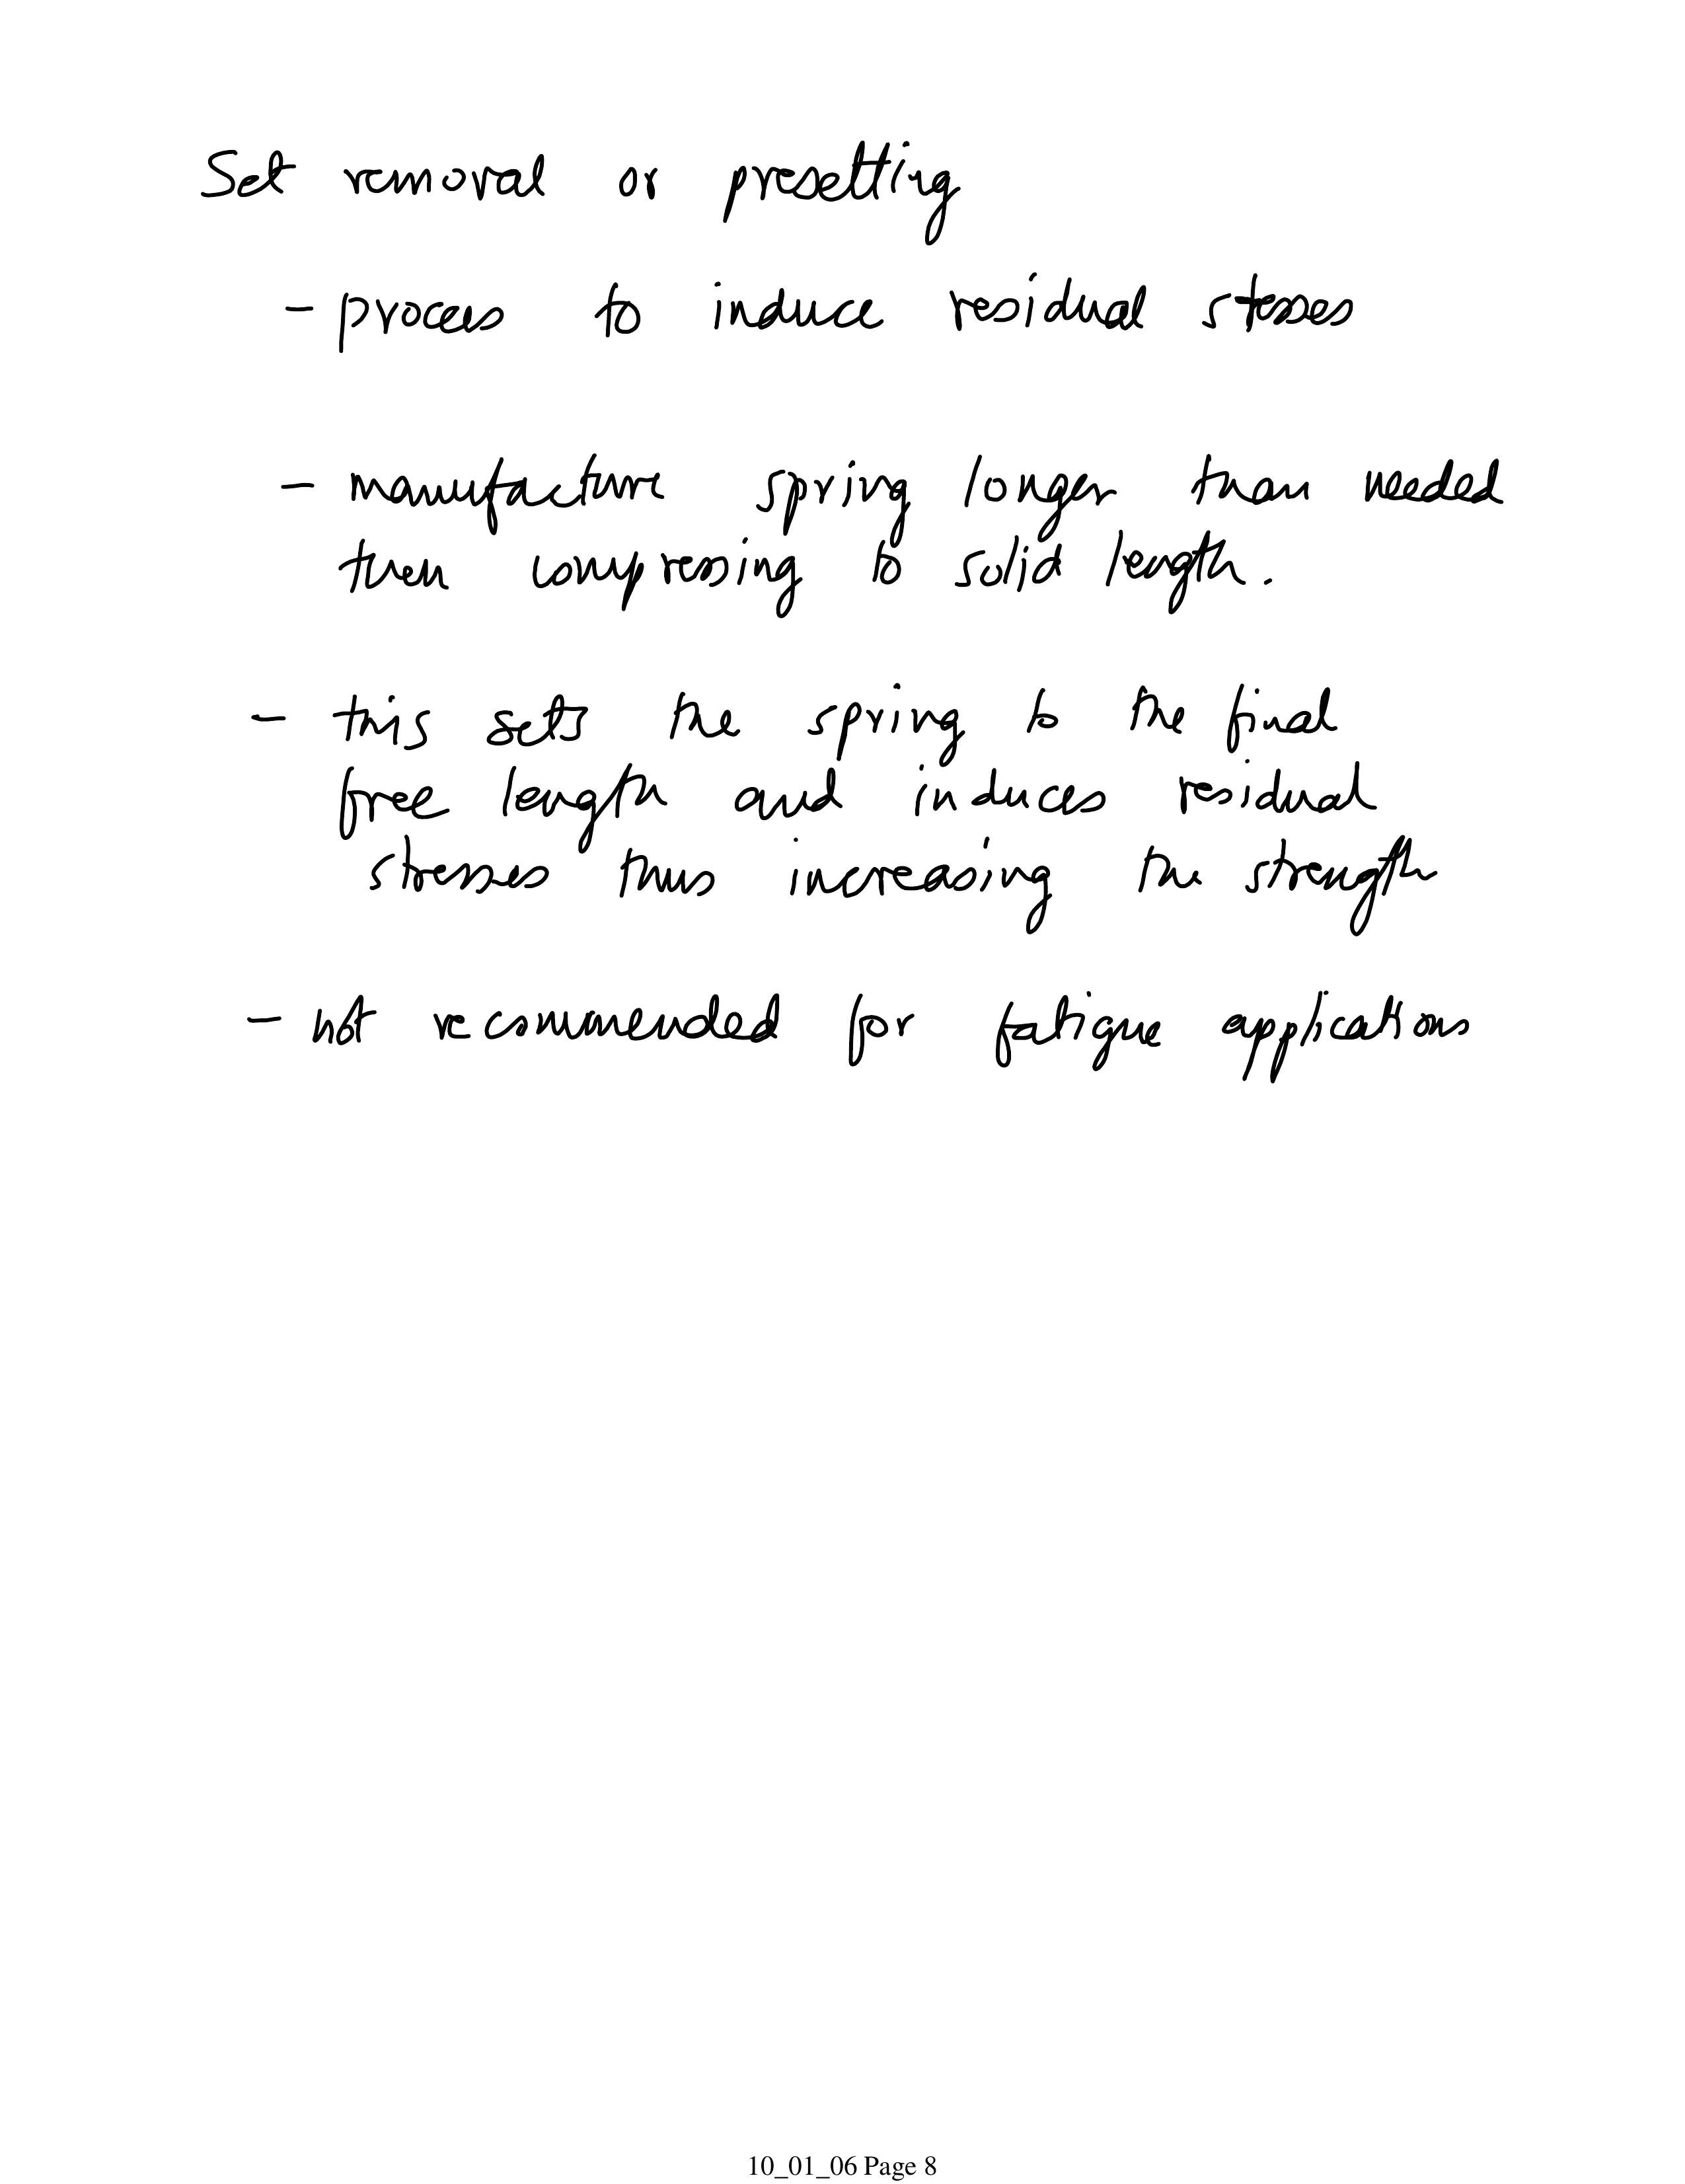 Set removal or presetting
- process to induce residual stresses
- manufacture spring longer than needed
then compressing to solid length.
- this sets the spring to the final
free length and induces residual
stresses thus increasing the strength
- not recommended for fatigue applications
10_01_06 Page 8